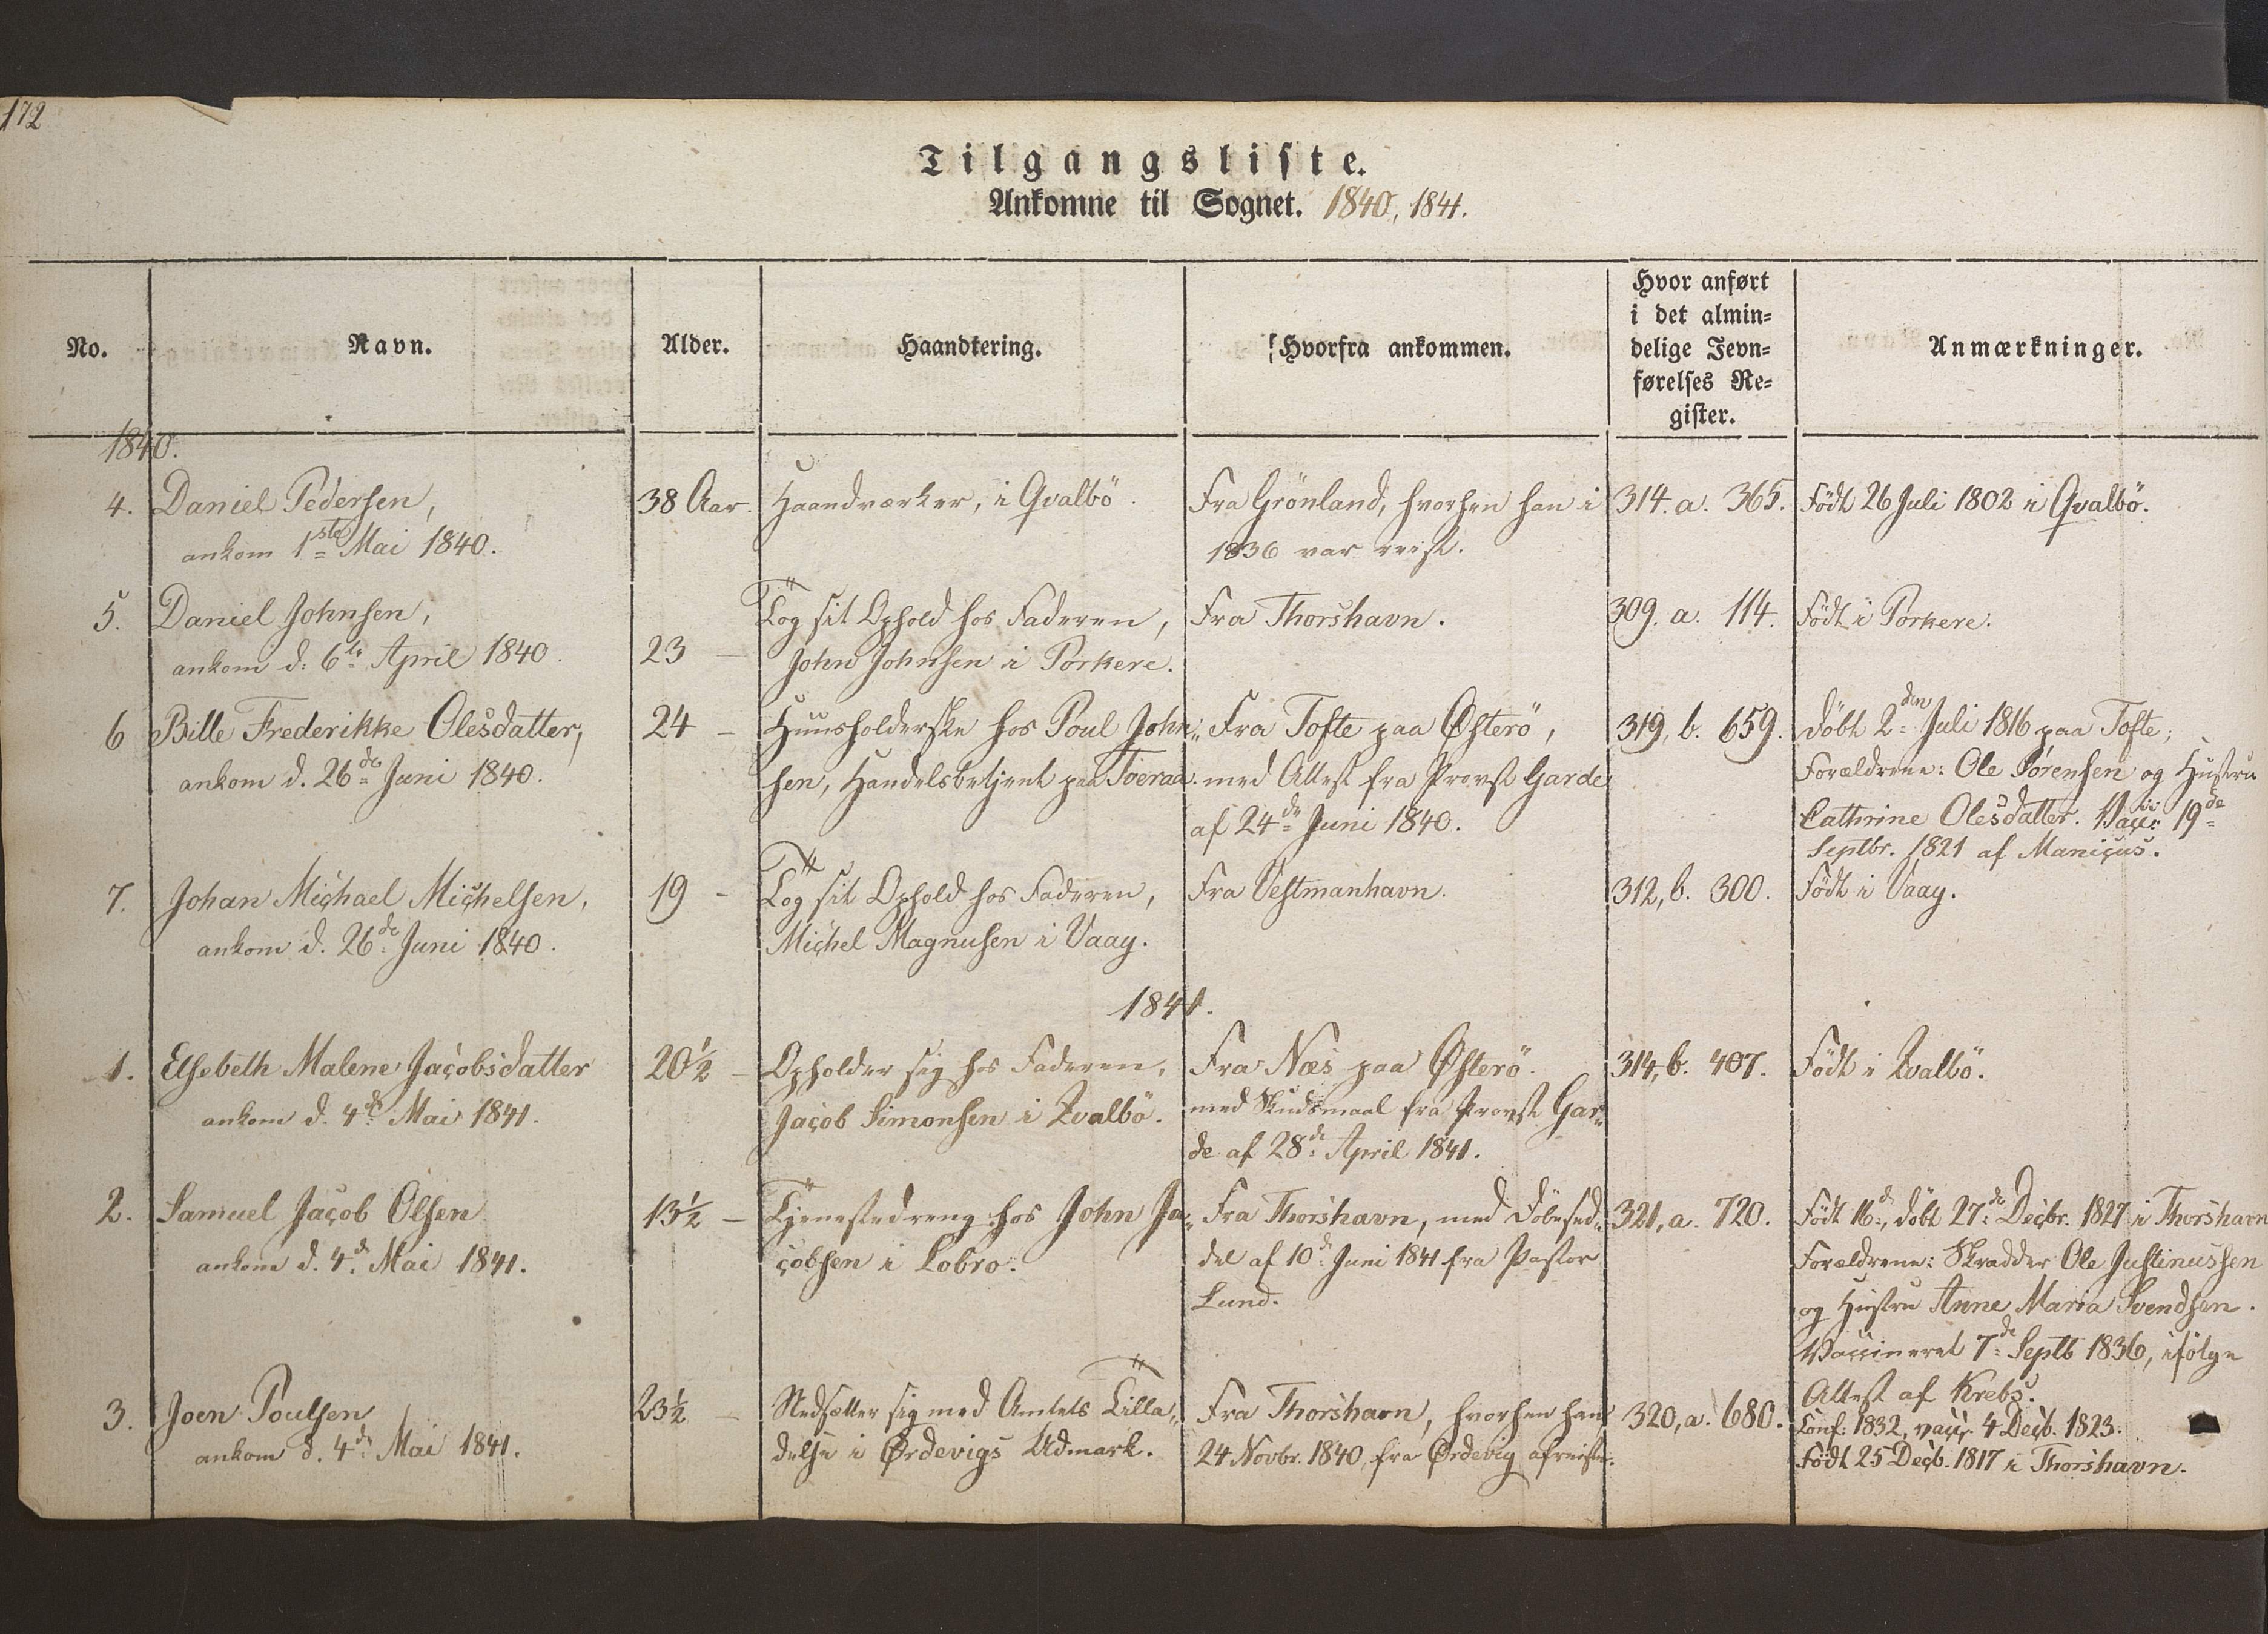 172
Tilgangsliste.
Ankomne til Sognet. 1840, 1841.
No.
Navn.
Alder.
Haandtering.
Hvorfra ankommen.
Hvor anført
i det almin=
delige Jevn=
førelses Re=
gister.
Anmærkninger.
1840.
4.
Daniel Pedersen,
ankom 1ste Mai 1840.
38 Aar.
Haandværker, i Qvalbö.
Fra Grönland, hvorhen han i
1836 var reist.
314. a. 365.
Födt 26 Juli 1802 i Qvalbö.
5.
Daniel Johnsen,
ankom d: 6te April 1840.
23 –
Tog sit Ophold hos Faderen,
John Johnsen i Porkere.
Fra Thorshavn.
309. a. 114.
Födt i Porkere.
6
Bille Frederikke Olesdatter,
ankom d. 26de Juni 1840.
24 –
Huusholderske hos Poul John„
sen, Handelsbetjent paa Tveraa.
Fra Tofte paa Østerö,
med Attest fra Provst Garde
af 24de Juni 1840.
319, b. 659.
Döbt 2den Juli 1816 paa Tofte;
Forældrene: Ole Sörensen og Hustru
Cathrine Olesdatter. Vacc: 19de
Septbr. 1821 af Manicus.
7.
Johan Michael Michelsen,
ankom d. 26de Juni 1840.
19 –
Tog sit Ophold hos Faderen,
Michel Magnusen i Vaag.
Fra Vestmanhavn.
312, b. 300.
Födt i Vaag.
1841.
1.
Elsebeth Malene Jacobsdatter
ankom d. 4de Mai 1841.
20½ –
Opholder sig hos Faderen,
Jacob Simonsen i Qvalbö.
Fra Næs paa Østerö.
med Skudsmaal fra Provst Gar„
de af 28de April 1841.
314, b. 407.
Födt i Qvalbö.
2.
Samuel Jacob Olsen
ankom d. 4de Mai 1841.
13½ –
Tjenestedreng hos John Ja„
cobsen i Lobro.
Fra Thorshavn, med Döbesed„
del af 10de Juni 1841 fra Pastor
Lund.
321, a. 720.
Födt 16de, döbt 27de Decbr. 1827 i Thorshavn
Forældrene: Skrædder Ole Justinussen
og Hustru Anne Maria Svendsen.
Vaccineret 7de Septb 1836, ifölge
Attest af Krebs.
3.
Joen Poulsen
ankom d. 4de Mai 1841.
23½ –
Nedsætter sig med Amtets Tilla„
delse i Ørdevigs Udmark.
Fra Thorshavn, hvorhen han
24 Novbr. 1840 fra Ørdevig afreiste.
320, a. 680.
Conf: 1832, vacc. 4 Decb. 1823.
Födt 25 Decb. 1817 i Thorshavn.